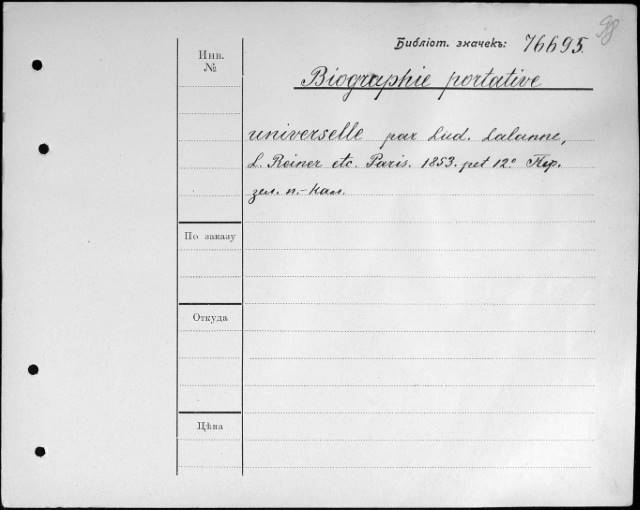 98
Библіот. значекъ: 76695.
Инв.
№
Biographie portative
universelle par Lud. Lalanne,
L. Reiner etc. Paris. 1853. pet 12° Пер.
зел. п.-кал.
По заказу
Откуда
Цѣна